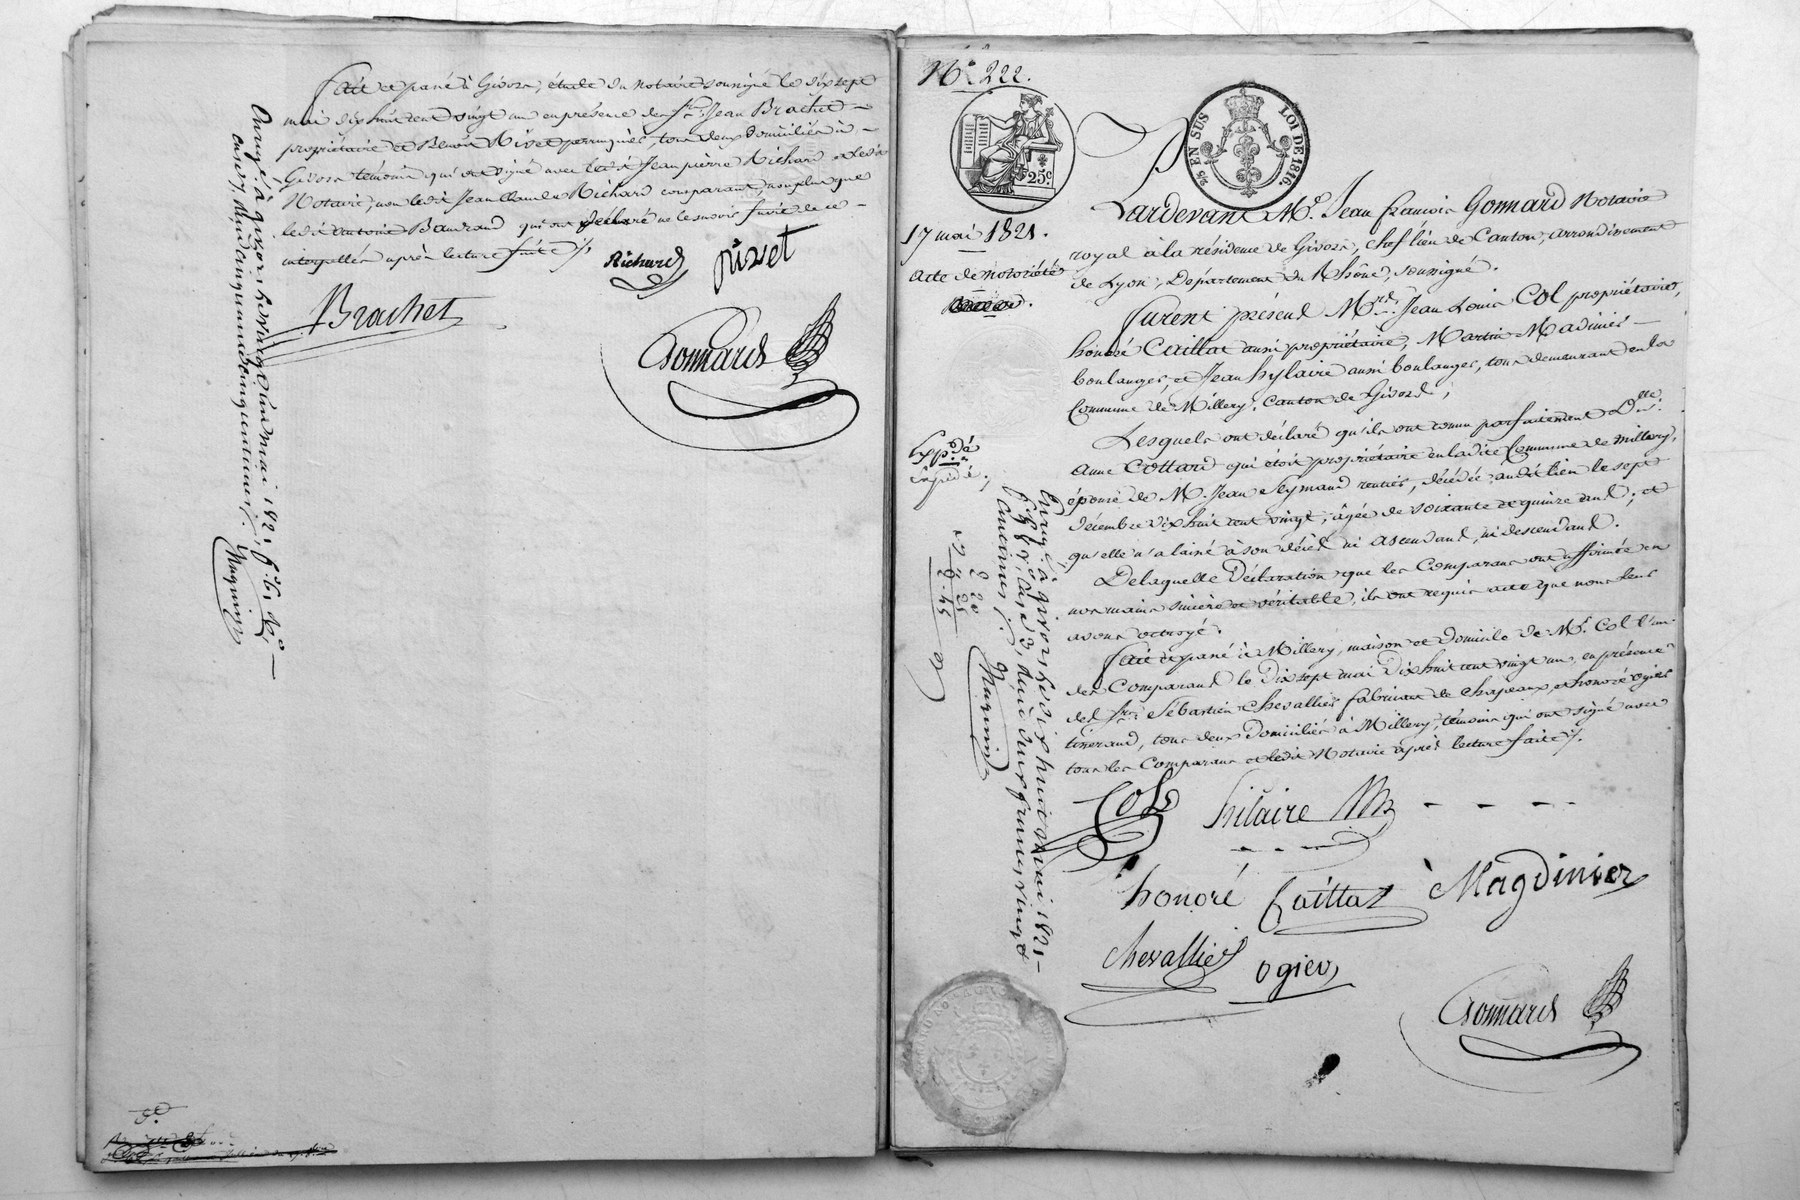 fait et passé à Givors, étude du Notaire soussigné le dix sept
mai dix huit cent vingt un en présence de srs. Jean Brachet
propriétaire et Benoit Rivet perruquier, tous deux domiciliés à
Givors témoins qui ont signé avec ledit Jean pierre Richard et ledit
Notaire, non ledit Jean Claude Richard comparant, non plus que
ledit antoine Baudrand qui ont déclaré ne le savoir faire de ce
interpellés après lecture faite ./.
Richard Rivet
Brachet
Gonnard
Enregé. à givors le vingt un mai 1821,
cinquante cinq centimes ./.
N° 222.
25c.
25 EN SUS
LOI DE 1816.
17 mai 1821.
acte de notoriété
Pardevant Me. Jean françois Gonnard Notaire
royal à la résidence de Givors, chef lieu de Canton, arrondissement
de Lyon, Département du Rhône, soussigné.
furent présens Mrs. Jean Louis Col propriétaire,
honoré Caillat aussi propriétaire, Martin Madinier
boulanger, et Jean hylaire aussi boulanger, tous demeurant en la
Commune de Millery, Canton de Givors;
Lesquels ont déclaré qu'ils ont connu parfaitement Dlle.
anne Cottard qui étoit propriétaire en ladite Commune de millery,
épouse de M. Jean Seymand rentier, décédée audit lieu le sept
décembre dix huit cent vingt, âgée de soixante et quinze ans; et
qu'elle n'a laissé à son décès ni ascendans, ni descendans.
De laquelle Déclaration que les Comparans ont affirmée en
nos mains sincère et véritable, ils ont requis acte que nous leur
avons octroyé.
fait et passé à Millery, maison et domicile de Mr. Col l'un
des Comparans le dix sept mai Dix huit cent vingt un, en présence
des srs. Sébastien Chevallier fabricant de chapeaux, et honoré ogier
tisserand, tous deux domiciliés à Millery, témoins qui ont signé avec
tous les Comparans et ledit Notaire après lecture faite ./.
Expdé.
expédié.
2 20
" 25
2 45
Enregé. à givors le dix huit mai 1821
deux francs vingt
centimes ./.
Col hilaire
honoré Caillat Magdinier
chevallier ogier
Gonnard